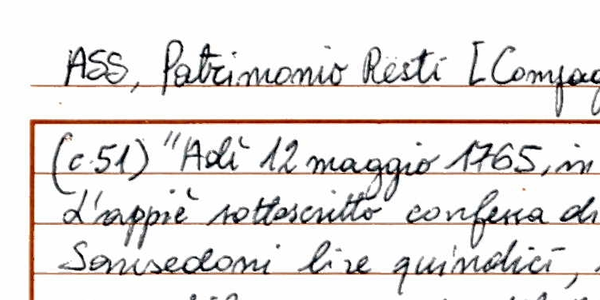 ASS, Patrimonio Resti [Compag
(c.51) "Adì 12 maggio 1765, in
d'appiè sottoscritto confessa di
Sansedoni lire quindici,